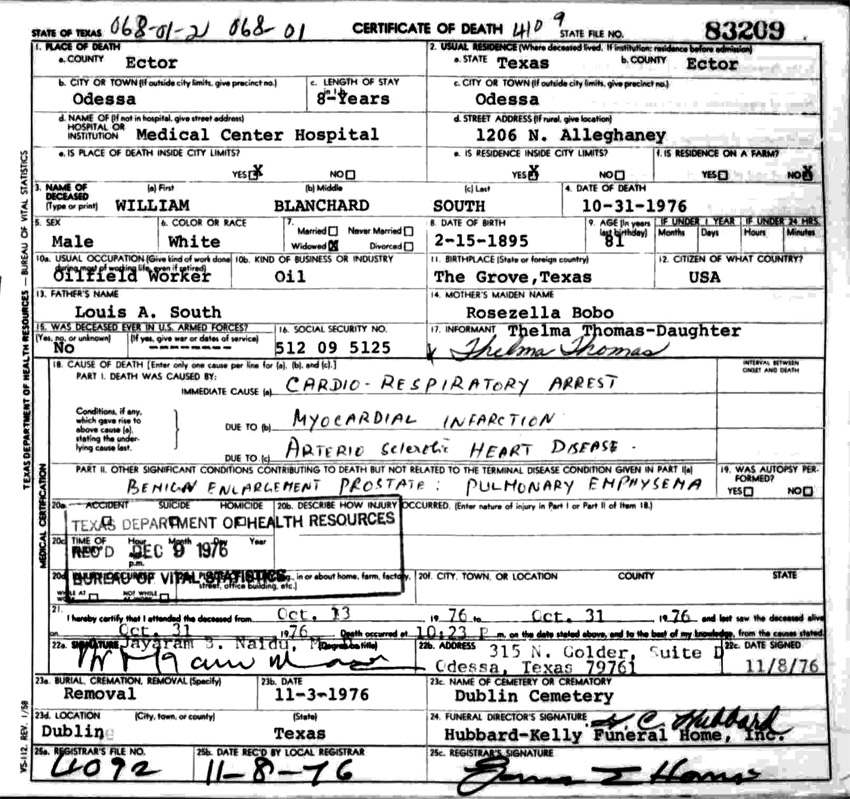 STATE OF TEXAS 068-01-21 068-01 CERTIFICATE OF DEATH 4109 STATE FILE NO. 83209
1. PLACE OF DEATH 2. USUAL RESIDENCE (Where deceased lived. If institution: residence before admission)
a. COUNTY Ector a. STATE Texas b. COUNTY Ector
b. CITY OR TOWN (If outside city limits, give precinct no.) c. LENGTH OF STAY c. CITY OR TOWN (If outside city limits, give precinct no.)
Odessa 8-Years Odessa
d. NAME OF (If not in hospital, give street address) d. STREET ADDRESS (If rural, give location)
HOSPITAL OR
INSTITUTION Medical Center Hospital 1206 N. Alleghaney
e. IS PLACE OF DEATH INSIDE CITY LIMITS? e. IS RESIDENCE INSIDE CITY LIMITS? f. IS RESIDENCE ON A FARM?
YES X NO YES X NO YES NO X
3. NAME OF (a) First (b) Middle (c) Last 4. DATE OF DEATH
DECEASED
(Type or print) WILLIAM BLANCHARD SOUTH 10-31-1976
5. SEX 6. COLOR OR RACE 7. Married Never Married 8. DATE OF BIRTH 9. AGE (In years last birthday) IF UNDER 1 YEAR IF UNDER 24 HRS.
Months Days Hours Minutes
Male White Widowed X Divorced 2-15-1895 81
10a. USUAL OCCUPATION (Give kind of work done during most of working life, even if retired) 10b. KIND OF BUSINESS OR INDUSTRY 11. BIRTHPLACE (State or foreign country) 12. CITIZEN OF WHAT COUNTRY?
Oilfield Worker Oil The Grove,Texas USA
13. FATHER'S NAME 14. MOTHER'S MAIDEN NAME
Louis A. South Rosezella Bobo
15. WAS DECEASED EVER IN U.S. ARMED FORCES? 16. SOCIAL SECURITY NO. 17. INFORMANT Thelma Thomas-Daughter
(Yes, no, or unknown) (If yes, give war or dates of service)
No -------- 512 09 5125 Thelma Thomas
18. CAUSE OF DEATH [Enter only one cause per line for (a), (b), and (c).] INTERVAL BETWEEN ONSET AND DEATH
PART I. DEATH WAS CAUSED BY:
IMMEDIATE CAUSE (a) CARDIO-RESPIRATORY ARREST
Conditions, if any, which gave rise to above cause (a), stating the underlying cause last.
DUE TO (b) MYOCARDIAL INFARCTION
DUE TO (c) ARTERIO Sclerotic HEART DISEASE.
PART II. OTHER SIGNIFICANT CONDITIONS CONTRIBUTING TO DEATH BUT NOT RELATED TO THE TERMINAL DISEASE CONDITION GIVEN IN PART I(a) 19. WAS AUTOPSY PERFORMED?
BENIGN ENLARGEMENT PROSTATE: PULMONARY EMPHYSEMA YES NO
20a. ACCIDENT SUICIDE HOMICIDE 20b. DESCRIBE HOW INJURY OCCURRED. (Enter nature of injury in Part I or Part II of Item 18.)
TEXAS DEPARTMENT OF HEALTH RESOURCES
20c. TIME OF Hour Month Day Year
REC'D DEC 9 1976
p.m.
20d. in or about home, farm, factory, street, office building, etc.) 20f. CITY, TOWN, OR LOCATION COUNTY STATE
BUREAU OF VITAL STATISTICS
WHILE AT NOT WHILE AT
21. I hereby certify that I attended the deceased from Oct. 13 1976 to Oct. 31 1976 and last saw the deceased alive
on Oct. 31 1976 Death occurred at 10:23 P m. on the date stated above, and to the best of my knowledge, from the causes stated.
22a. SIGNATURE Jayaram B. Naidu, M. (Degree or title) 22b. ADDRESS 315 N. Golder, Suite D 22c. DATE SIGNED
Odessa, Texas 79761 11/8/76
23a. BURIAL, CREMATION, REMOVAL (Specify) 23b. DATE 23c. NAME OF CEMETERY OR CREMATORY
Removal 11-3-1976 Dublin Cemetery
23d. LOCATION (City, town, or county) (State) 24. FUNERAL DIRECTOR'S SIGNATURE C. Hubbard
Dublin Texas Hubbard-Kelly Funeral Home, Inc.
25a. REGISTRAR'S FILE NO. 25b. DATE REC'D BY LOCAL REGISTRAR 25c. REGISTRAR'S SIGNATURE
4092 11-8-76
TEXAS DEPARTMENT OF HEALTH RESOURCES — BUREAU OF VITAL STATISTICS
MEDICAL CERTIFICATION
VS-112 REV. 1/58